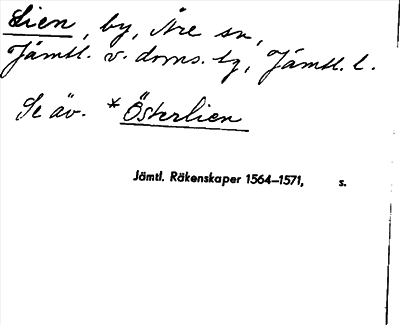 Lien, by, Åre sn,
Jämtl. v. doms. tg, Jämtl. l.
Se äv. *Österlien
Jämtl. Räkenskaper 1564–1571, s.